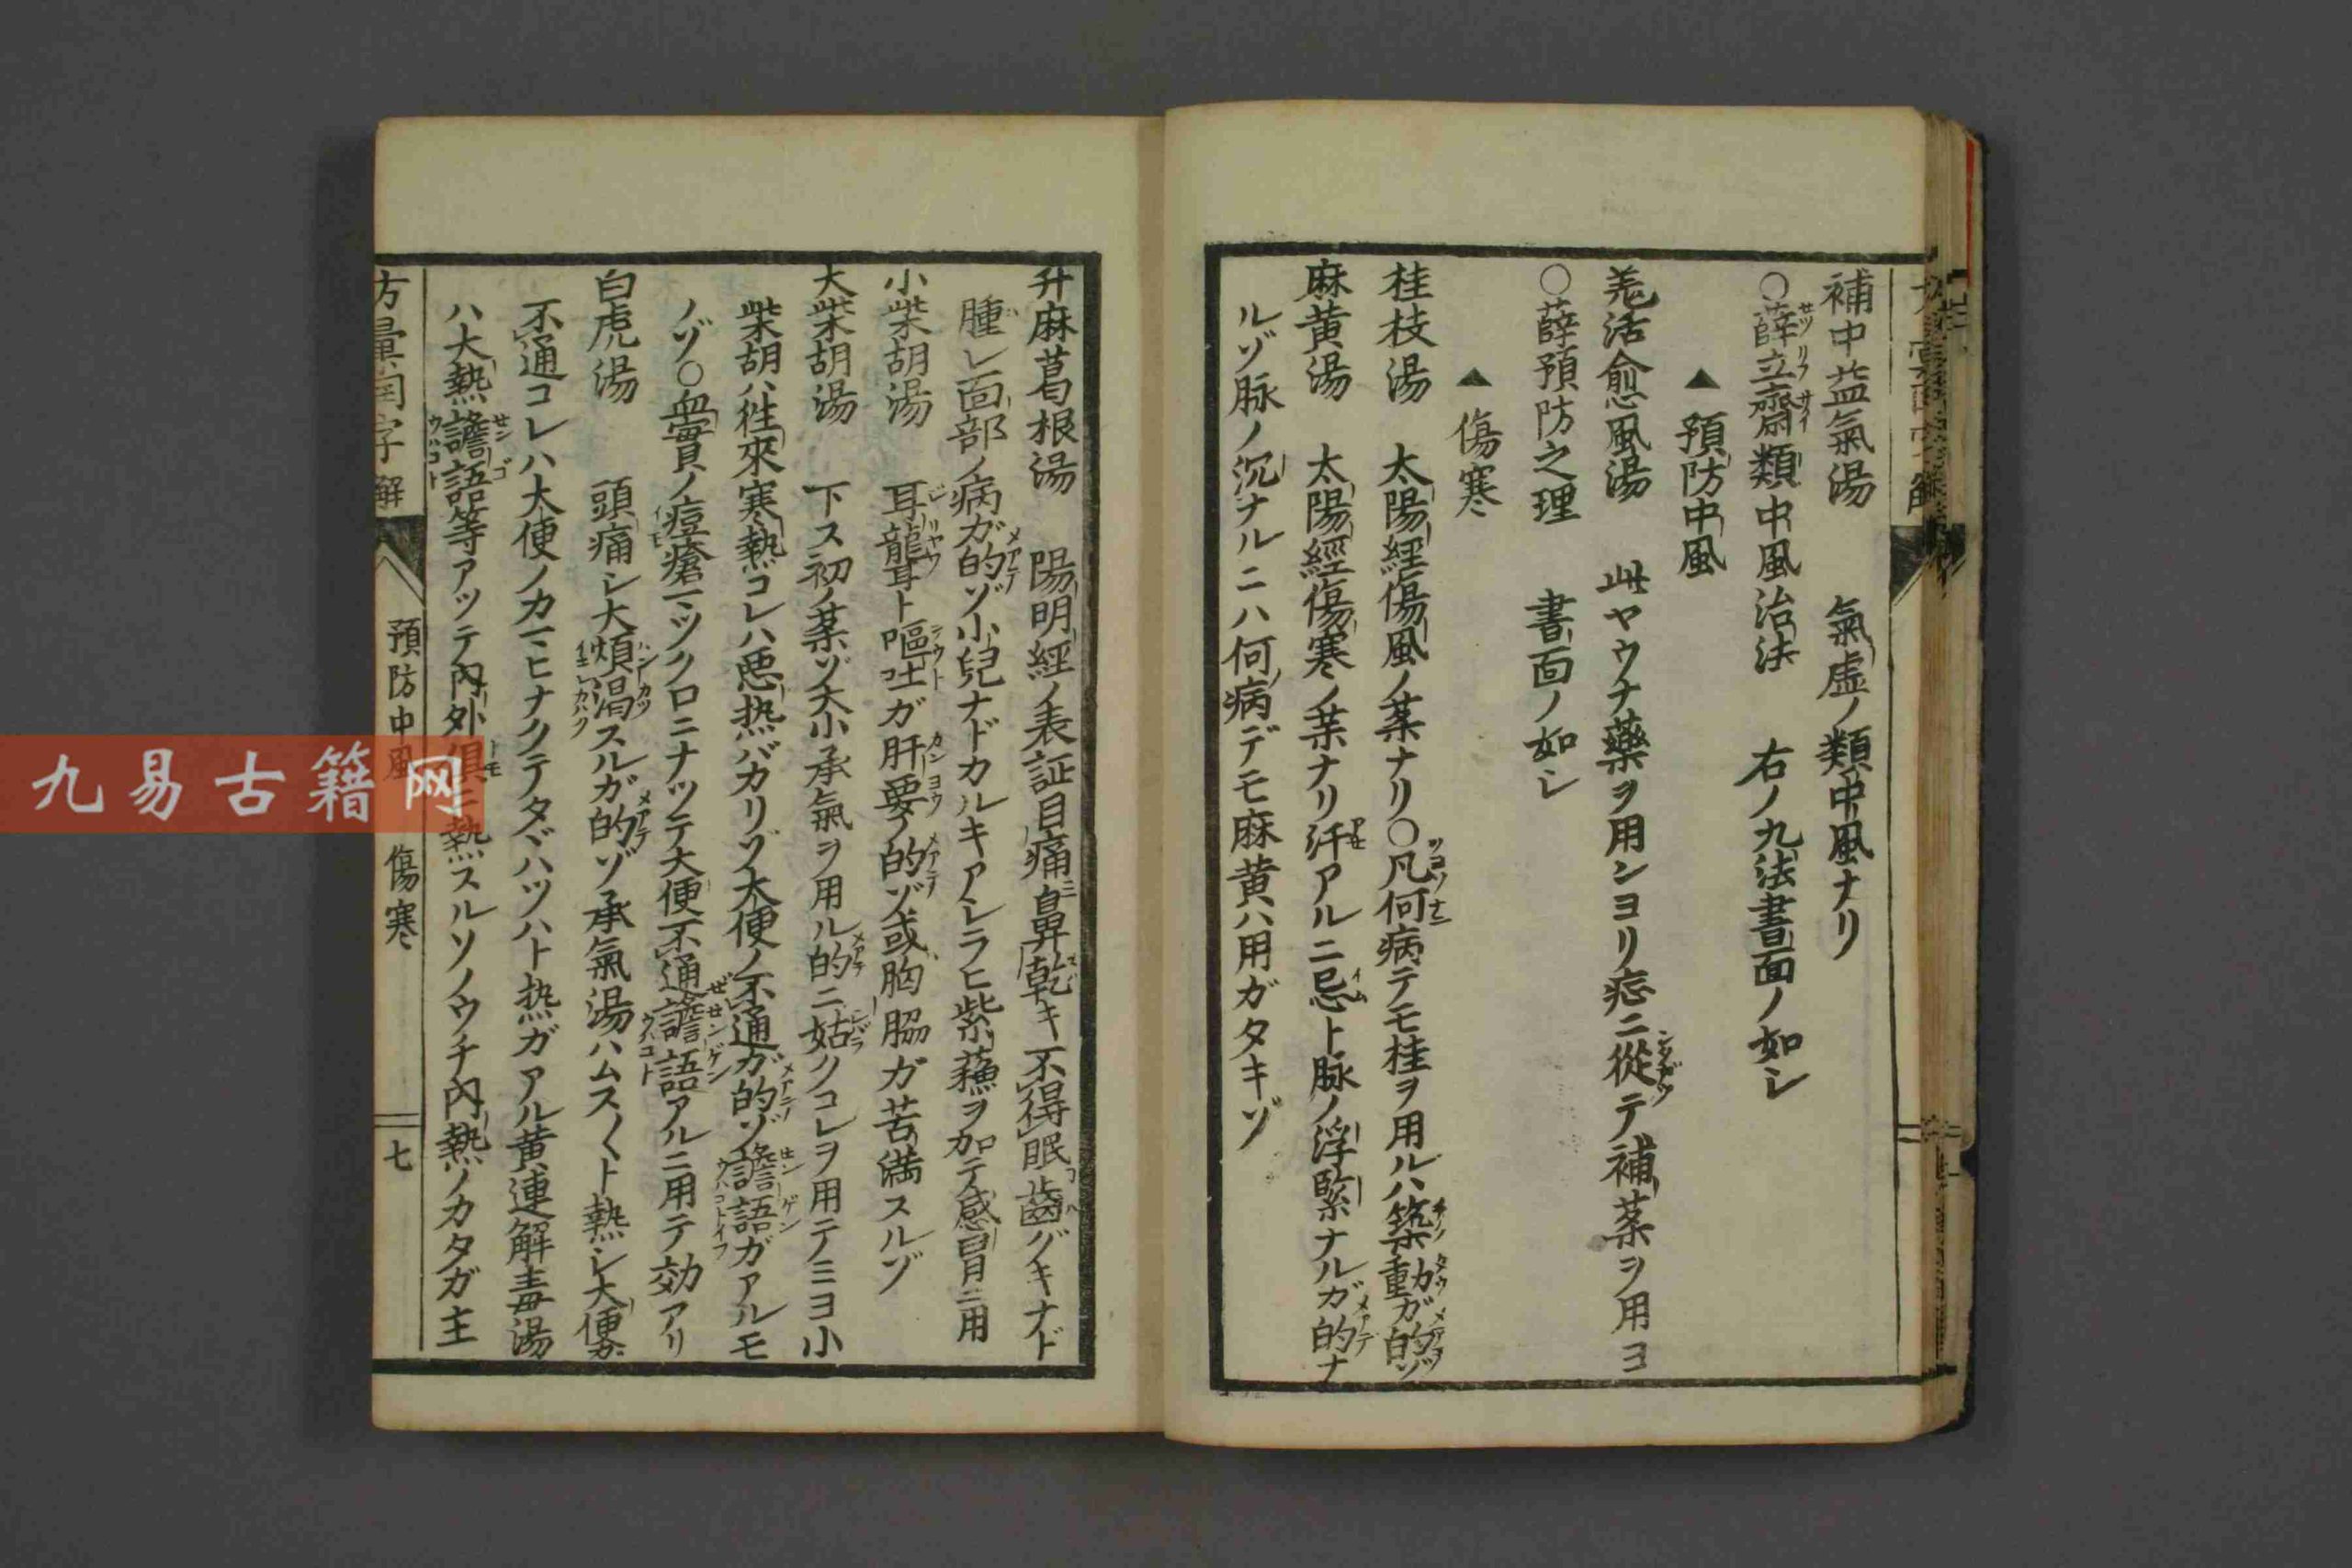 補中益氣湯　氣虛ノ類中風ナリ
○薛立齋類中風治法　右ノ九法書面ノ如シ
▲預防中風
羗活愈風湯　此ヤウナ藥ヲ用ンヨリ症ニ從テ補薬ヲ用ヨ
○薛預防之理　書面ノ如シ
▲傷寒
桂枝湯　太陽經傷風ノ薬ナリ○凡何病テモ桂ヲ用ルハ築動ガ的ゾ
麻黄湯　太陽經傷寒ノ薬ナリ汗アルニ忌ト脉ノ浮緊ナルガ的ナ
ルゾ脉ノ沉ナルニハ何病デモ麻黄ハ用ガタキゾ
升麻葛根湯　陽明經ノ表証目痛鼻乾キ不得眠齒グキナド
腫レ面部ノ病ガ的ゾ小兒ナドカルキアシラヒ紫蘓ヲ加テ感冒ニ用
小柴胡湯　耳聾ト嘔吐ガ肝要ノ的ゾ或胸脇ガ苦満スルゾ
大柴胡湯　下ス初ノ薬ゾ大小承氣ヲ用ル的ニ姑クコレヲ用テミヨ小
柴胡ハ徃來寒熱コレハ悪热バカリゾ大便ノ不通ガ的ゾ譫語ガアルモ
ノゾ○血實ノ痘瘡マツクロニナツテ大便不通譫語アルニ用テ効アリ
白虎湯　頭痛シ大煩渇スルガ的ゾ承氣湯ハムスノ〱ト熱シ大便ガ
不通コレハ大便ノカマヒナクテタヾハツハト热ガアル黄連解毒湯
ハ大熱譫語等アツテ内外俱ニ熱スルソノウチ内熱ノカタガ主
方彙国字解　預防中風　傷寒　七
九易古籍网